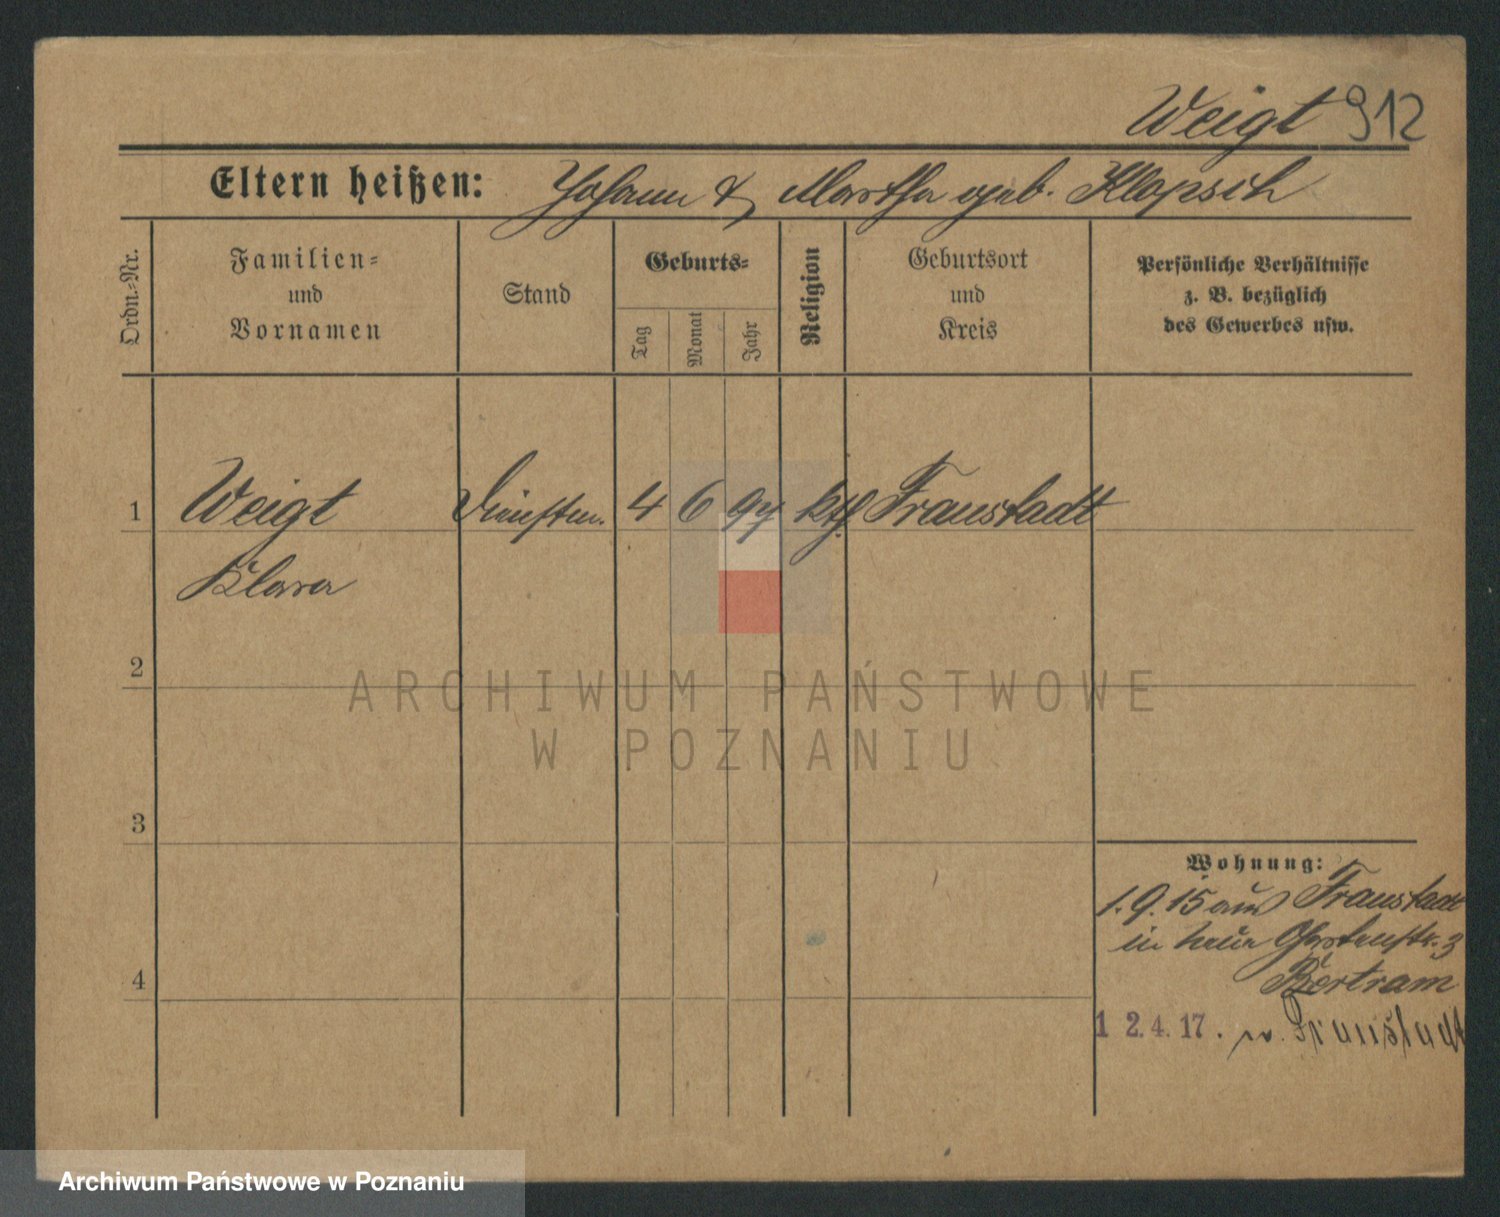 Weigt 912
Eltern heißen: Johann & Martha geb. Klopsch
Ordn.-Nr.
Familien-
und
Vornamen
Stand
Geburts-
Tag
Monat
Jahr
Religion
Geburtsort
und
Kreis
Persönliche Verhältnisse
z. B. bezüglich
des Gewerbes usw.
1 Weigt Dienstm. 4 6 97 kth Fraustadt
Klara
2
3
4
Wohnung:
1.9.15 aus Fraustadt
in Gartenstr. 3
Bertram
12.4.17. n. Fraustadt
ARCHIWUM PAŃSTWOWE
W POZNANIU
Archiwum Państwowe w Poznaniu